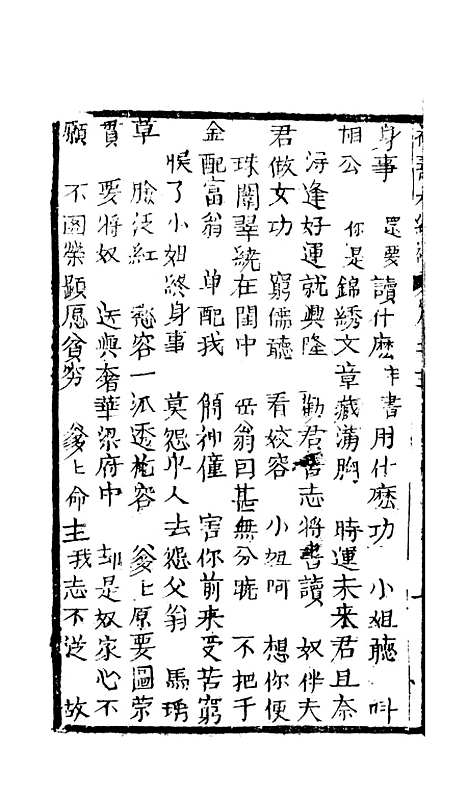 身事 還要讀什麽書用什麽功 小姐聽 叫
相公 你是錦綉文章藏滿胸 時運未来君且奈
淂逢好運就興隆 勸君書志將書讀 奴伴夫
君做女功 窮儒聽 看姣容 小姐阿 想你便
珠闈翠繞在閨中 岳翁囙甚無分曉 不把千
金配富翁 单配我 簡神僮 害你前来受苦窮
悮了小姐終身事 莫怨小人去怨父翁 馬瑀
草 臉泛紅 愁容一派透桅容 爹上原要圖荣
貫 要將奴 送與奢華梁府中 却是奴家心不
願 不圖榮顯愿貧穷 爹上命主我志不從 故